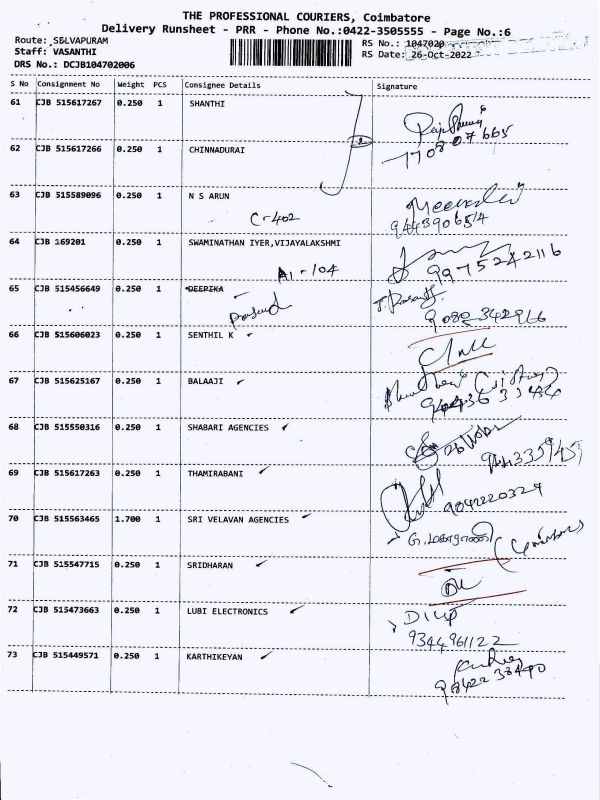 THE PROFESSIONAL COURIERS, Coimbatore
Delivery Runsheet - PRR - Phone No.:0422-3505555 - Page No.:6
Route: S&LVAPURAM
RS No.: 1047020
Staff: VASANTHI
RS Date: 26-Oct-2022
DRS No.: DCJB104702006
S No Consignment No Weight PCS Consignee Details Signature
61 CJB 515617267 0.250 1 SHANTHI
62 CJB 515617266 0.250 1 CHINNADURAI
63 CJB 515589096 0.250 1 N S ARUN
C-402
9443906514
64 CJB 169201 0.250 1 SWAMINATHAN IYER,VIJAYALAKSHMI
A1-104
9975242116
65 CJB 515456649 0.250 1 DEEPIKA
Prasad
9080342916
66 CJB 515606023 0.250 1 SENTHIL K
67 CJB 515625167 0.250 1 BALAAJI
68 CJB 515550316 0.250 1 SHABARI AGENCIES
69 CJB 515617263 0.250 1 THAMIRABANI
9042220324
70 CJB 515563465 1.700 1 SRI VELAVAN AGENCIES
71 CJB 515547715 0.250 1 SRIDHARAN
72 CJB 515473663 0.250 1 LUBI ELECTRONICS
Dilip
9344961122
73 CJB 515449571 0.250 1 KARTHIKEYAN